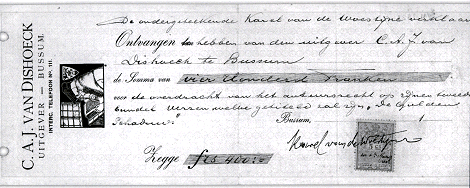 C. A. J. VAN DISHOECK
UITGEVER — BUSSUM.
INTERC. TELEFOON No. 111.
De ondergeteekende Karel van de Woestijne verklaart
Ontvangen te hebben van den uitgever C. A. J. van
Dishoeck te Bussum
de Somma van vier honderd franken
voor de overdracht van het auteursrecht op zijnen tweeden
bundel Verzen welke getiteld zal zijn "De Gulden
Schaduw."
Bussum,
Karel van de Woestijne
Zegge frs 400:-